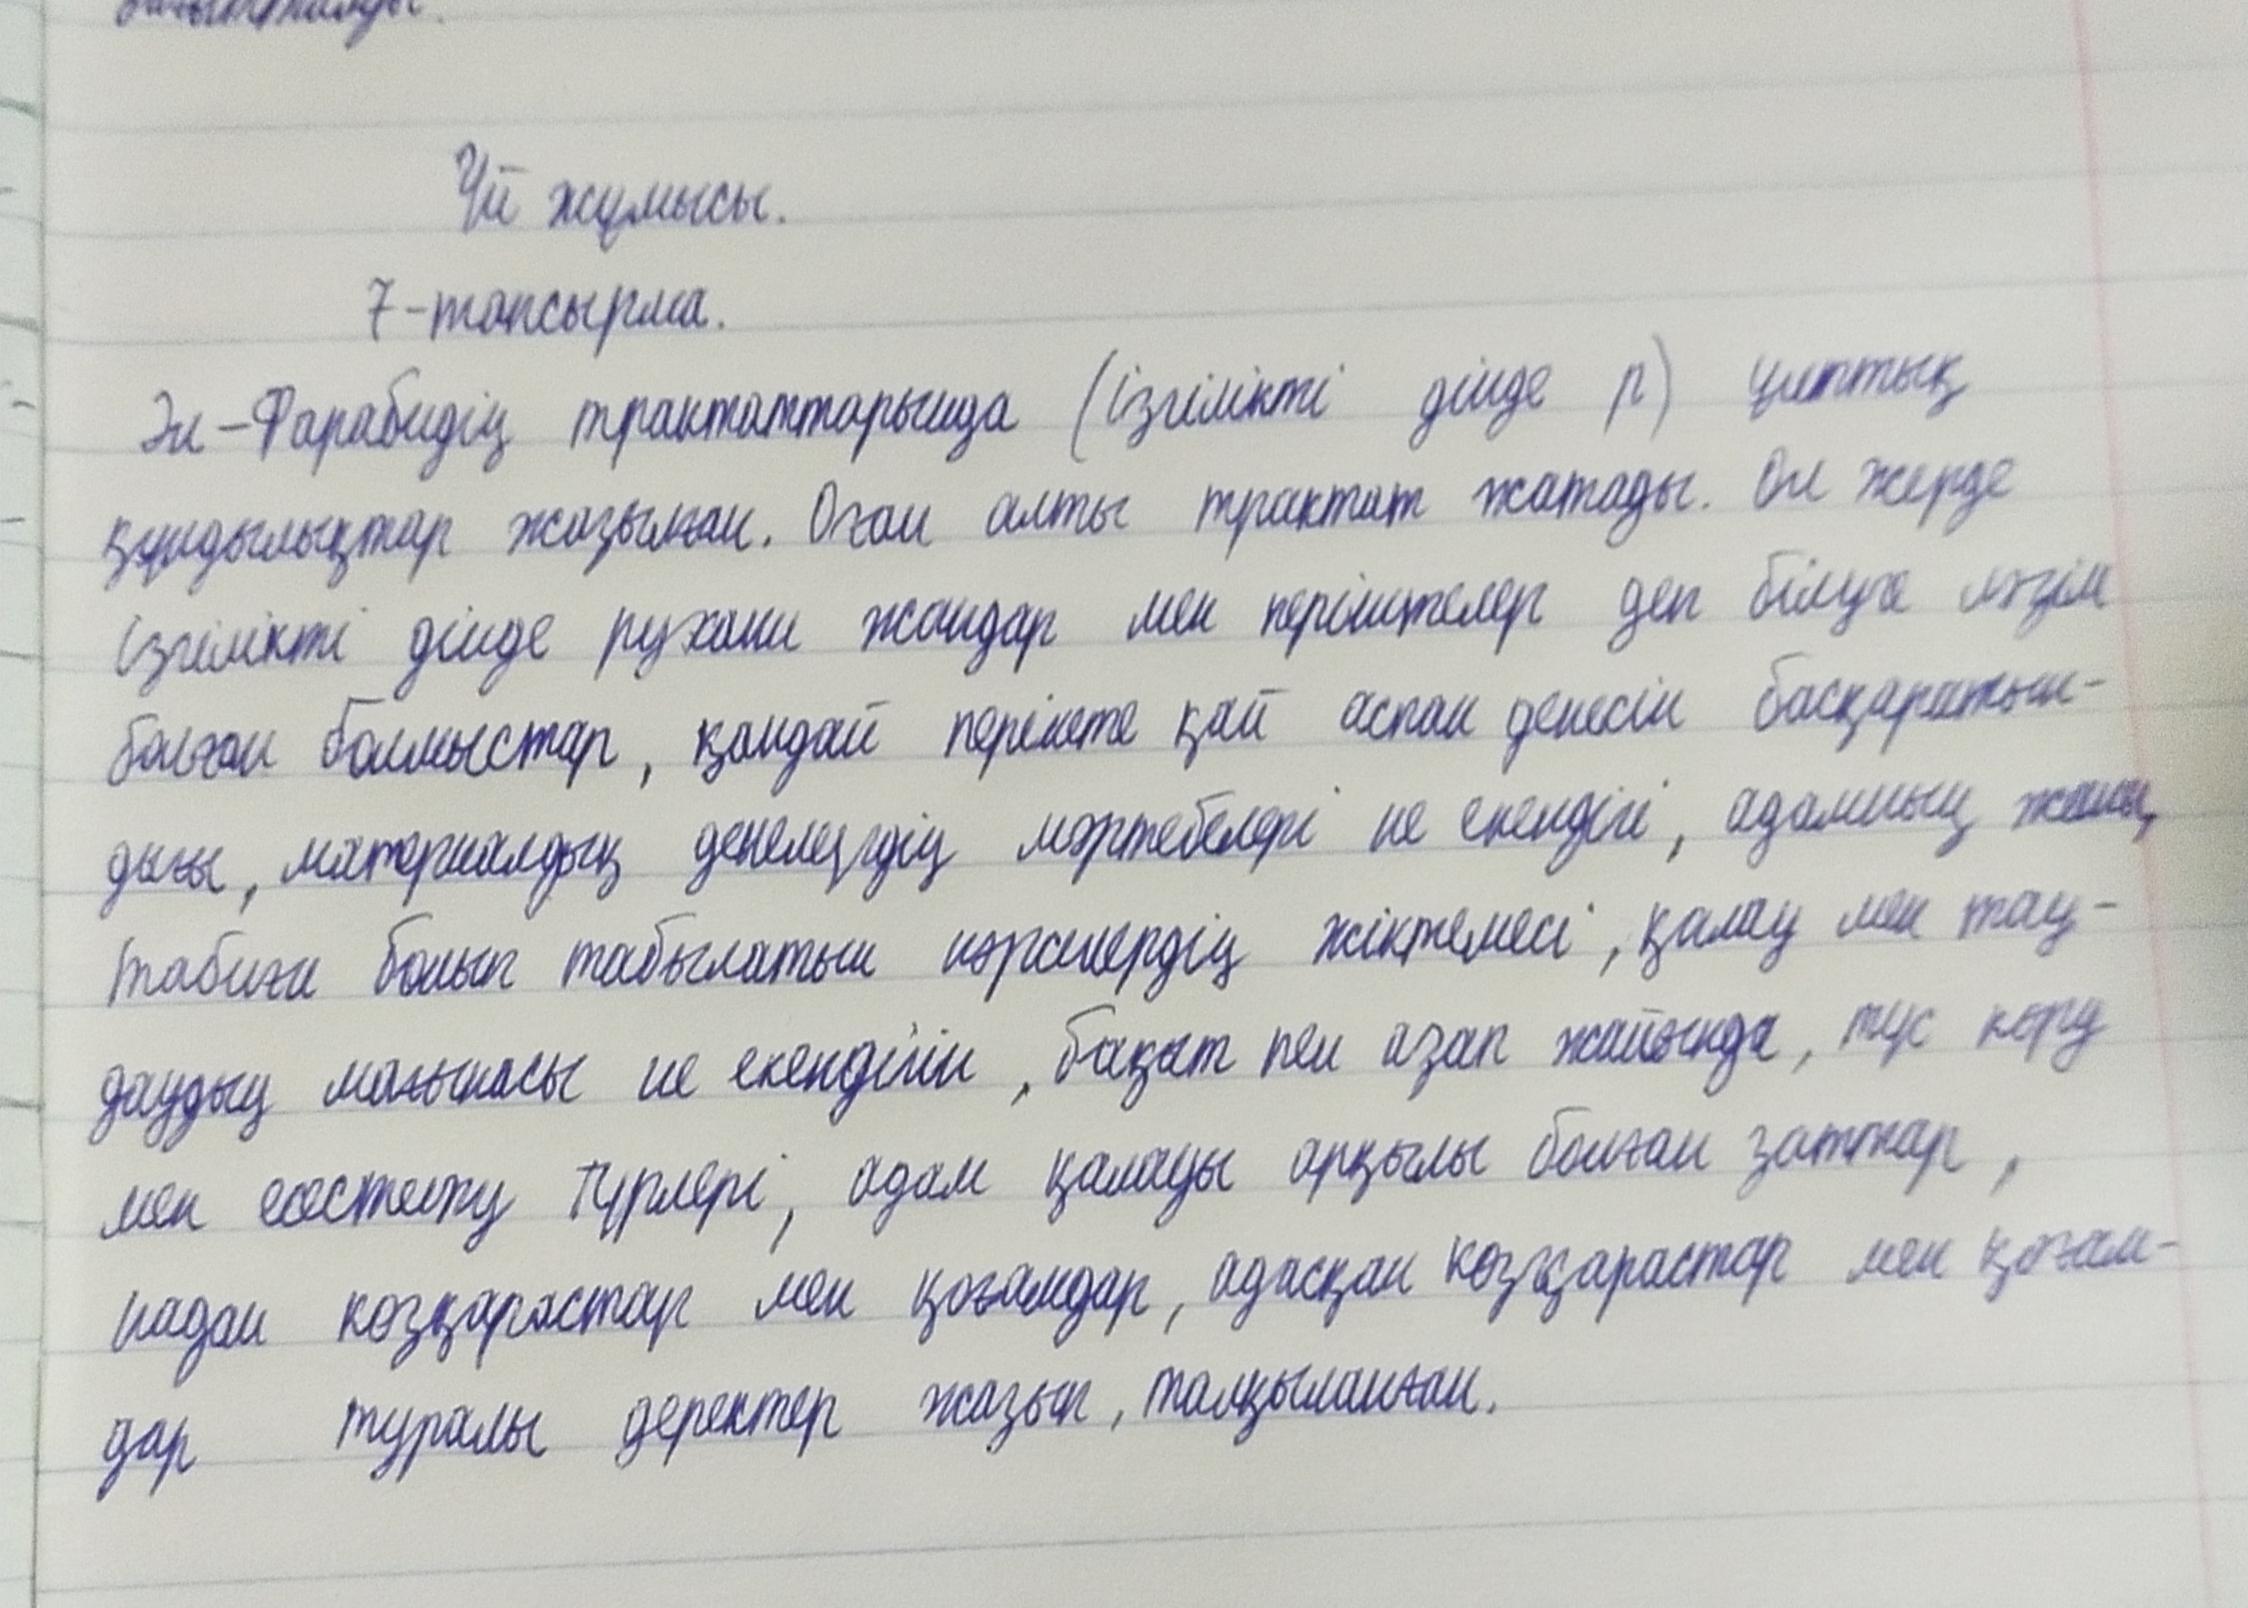 Үй жұмысы.
7-тапсырма.
Әл-Фарабидің трактаттарында (ізгілікті дінде р) ұлттық
құндылықтар жазылған. Оған алты трактат жатады. Ол жерде
ізгілікті дінде рухани жандар мен періштелер деп білуге лəзім
болған болмыстар, қандай періште қай аспан денесін басқаратын-
дығы, материалдық денелердің мәртебелері не екендігі, адамның жаны,
табиғи болып табылатын нәрселердің жіктемесі, қалау мен таң-
даудың мағынасы не екендігін, бақыт пен азап жайында, түс көру
мен елестету түрлері, адам қалауы арқылы болған заттар,
надан көзқарастар мен қоғамдар, адасқан көзқарастар мен қоғам-
дар туралы деректер жазып, талқыланған.